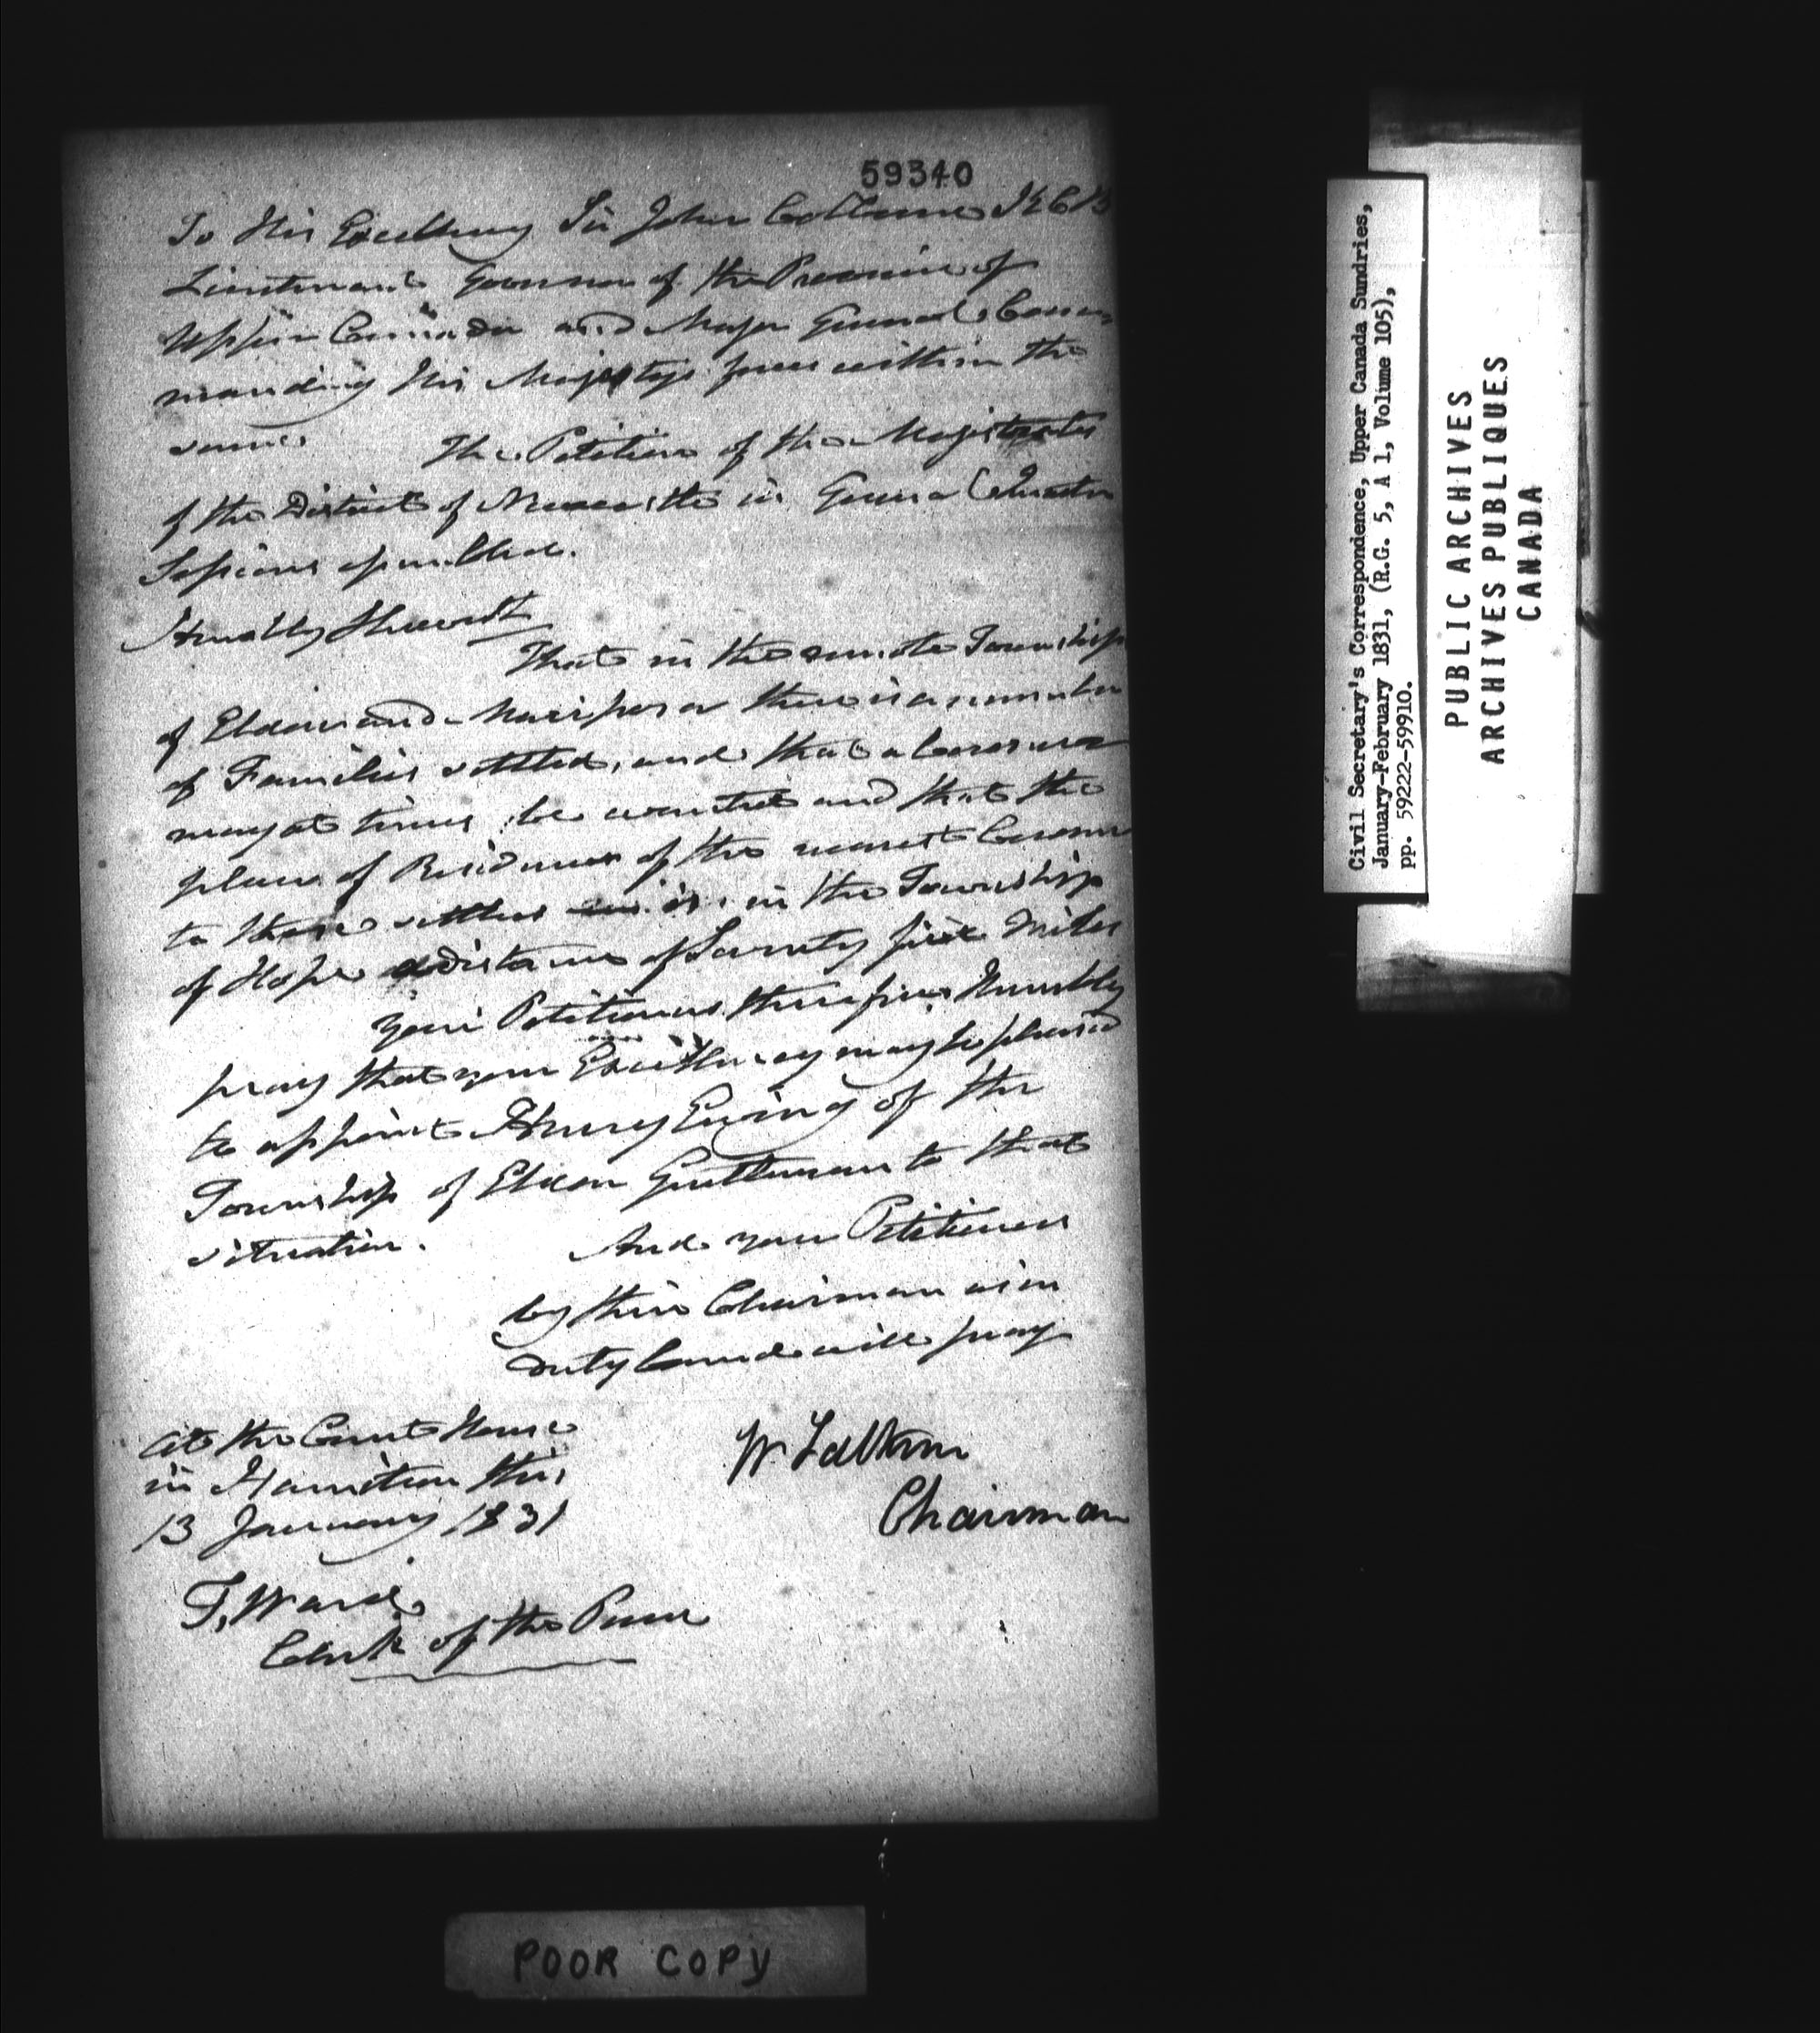 59340
To His Excellency Sir John Colborne K C B
Lieutenant Governor of the Province of
Upper Canada and Major General Com
manding His Majestys forces within the
same.
The Petition of the Magistrates
of the District of Newcastle in General Quarter
Sessions assembled.
Humbly Sheweth
That in the remote Townships
of Eldon and Mariposa there is a number
of Families settled, and that a Coroner
may at times be wanted and that the
place of Residence of the nearest Coroner
to those settlers is in the Township
of Hope a distance of Seventy five Miles
Your Petitioners therefore Humbly
pray that your Excellency may be pleased
to appoint Henry Ewing of the
Township of Eldon Gentleman to that
situation.
And your Petitioners
by their Chairman as in
duty bound will pray
At the Court House
in Hamilton this
13 January 1831
W. Falkner
Chairman
T, Ward
Clerk of the Peace
POOR COPY
Civil Secretary's Correspondence, Upper Canada Sundries,
January-February 1831, (R.G. 5, A 1, Volume 105),
pp. 59222-59910.
PUBLIC ARCHIVES
ARCHIVES PUBLIQUES
CANADA